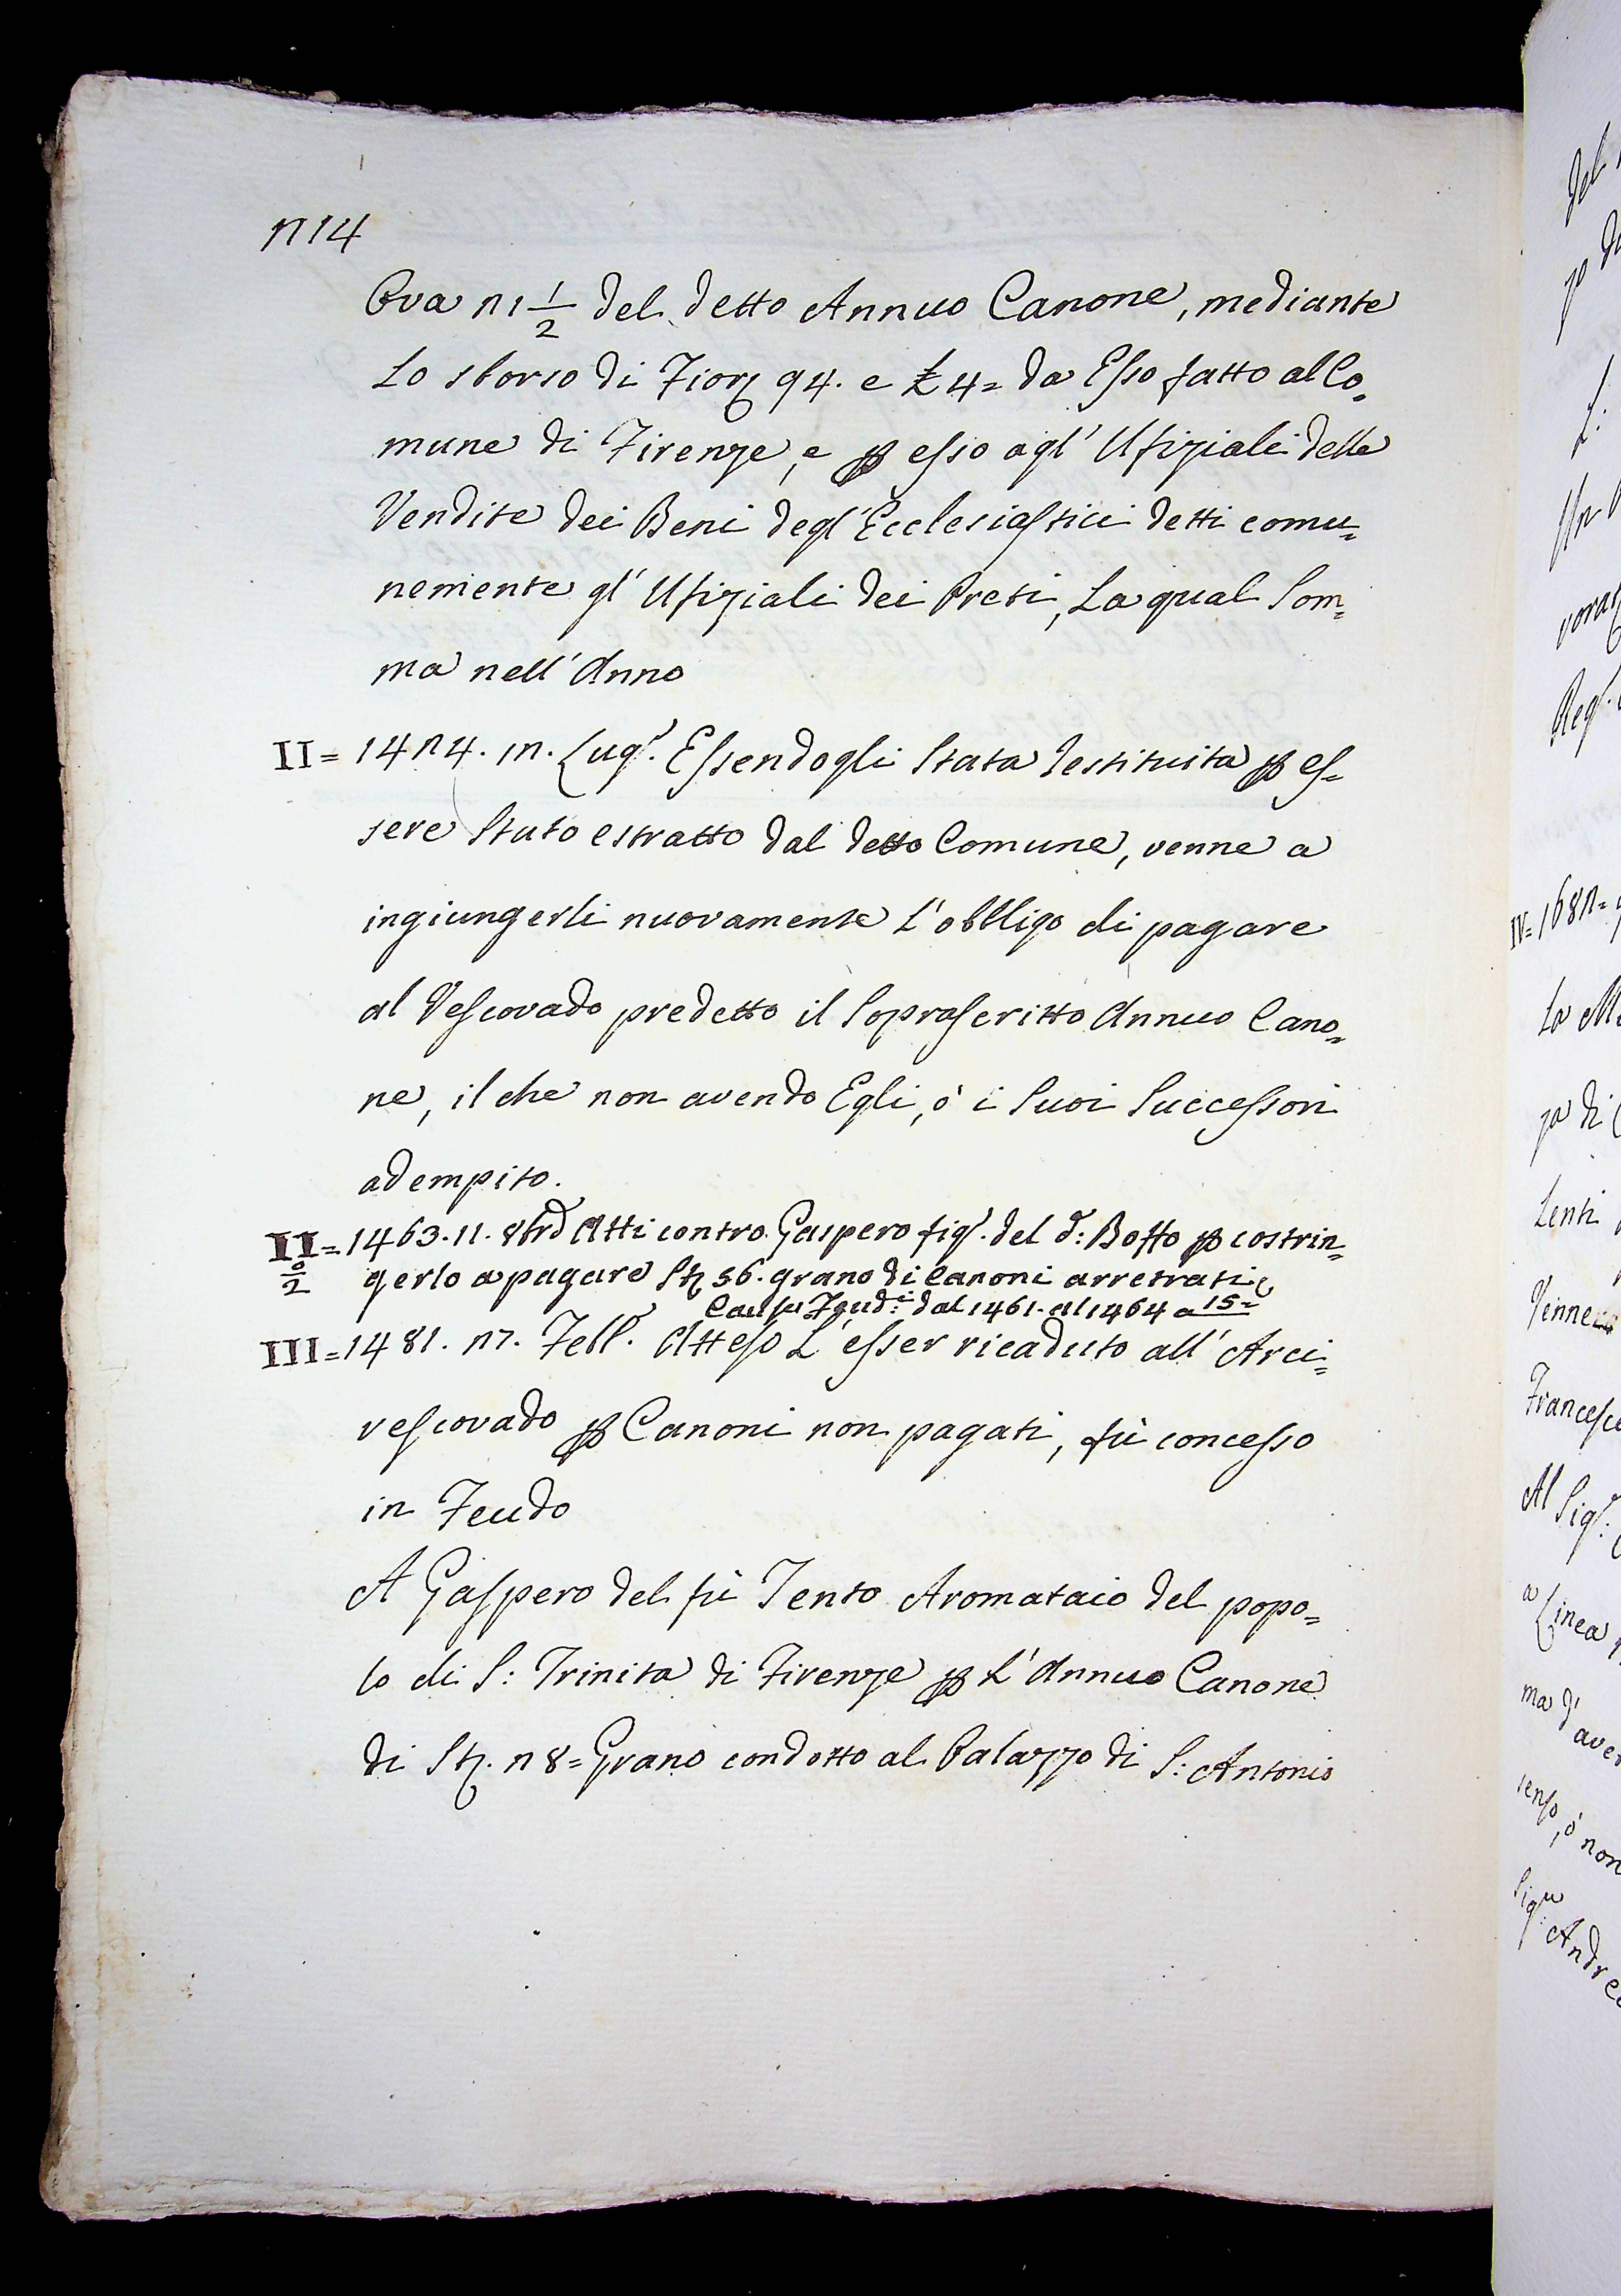 214
Ova 21 1/2 del detto Annuo Canone, mediante
Lo sborso di Fior: 94. e £ 4= da Esso fatto al Co=
mune di Firenze, e p esso agl' Ufiziali delle
Vendite dei Beni degl' Ecclesiastici detti comu=
nemente gl' Ufiziali dei Preti, La qual Som=
ma nell' Anno
II= 1424. 12. Lug.º Essendogli Stata restituita p es=
sere Stato estratto dal detto Comune, venne a
ingiungerli nuovamente L'obbligo di pagare
al Vescovado predetto il Soprascritto Annuo Cano=
ne, il che non avendo Egli, ò i Suoi Successori
adempito.
II= 1463. 11. 8bre Atti contro Gaspero fig.º del d.º: Boffo p costrin=
2 gerlo a pagare St: 56. grano di Canoni arretrati
Cause Feud.i: dal 1461. al 1464 a 15=
III= 1481. 27. Febb.º Atteso L'esser ricaduto all' Arci=
vescovado p Canoni non pagati, fù concesso
in Feudo
A Gaspero del fù Tento Aromataio del popo=
lo di S: Trinita di Firenze p L'Annuo Canone
di St: 28= Grano condotto al Palazzo di S: Antonio
IV= 1682=
La
Lenti
Venne
Al Sig.r:
a Linea
ma d'
ò non